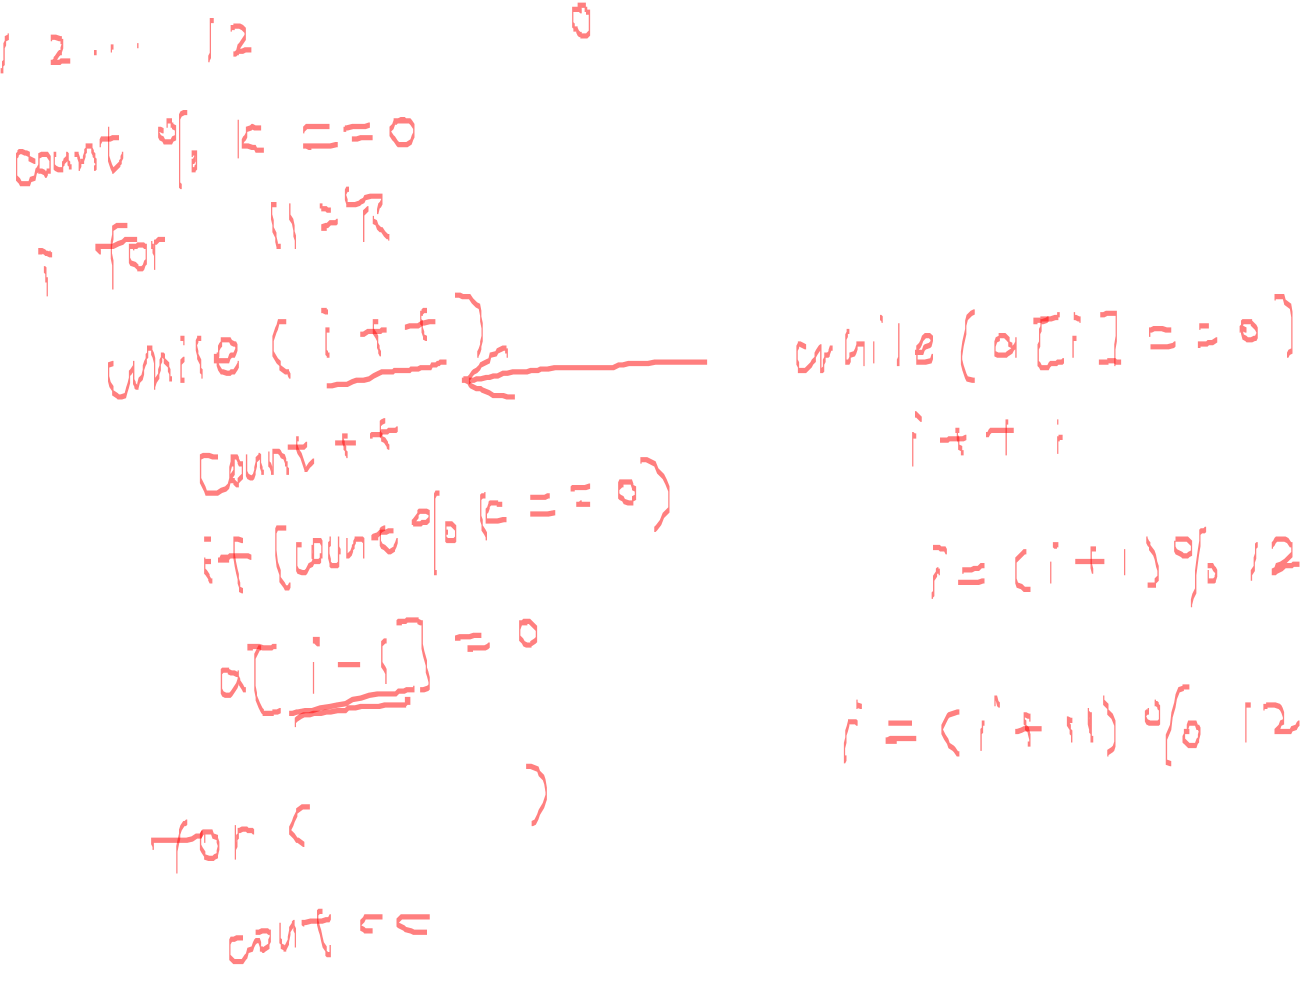 1 2 ... 12
0
count % k == 0
i for 11 = 次
while ( i++ )
count ++
if (count % k == 0)
a[ i-1 ] = 0
for ( )
cout <<
while (a[i] == 0)
i++ ;
i = (i+1) % 12
i = (i+11) % 12